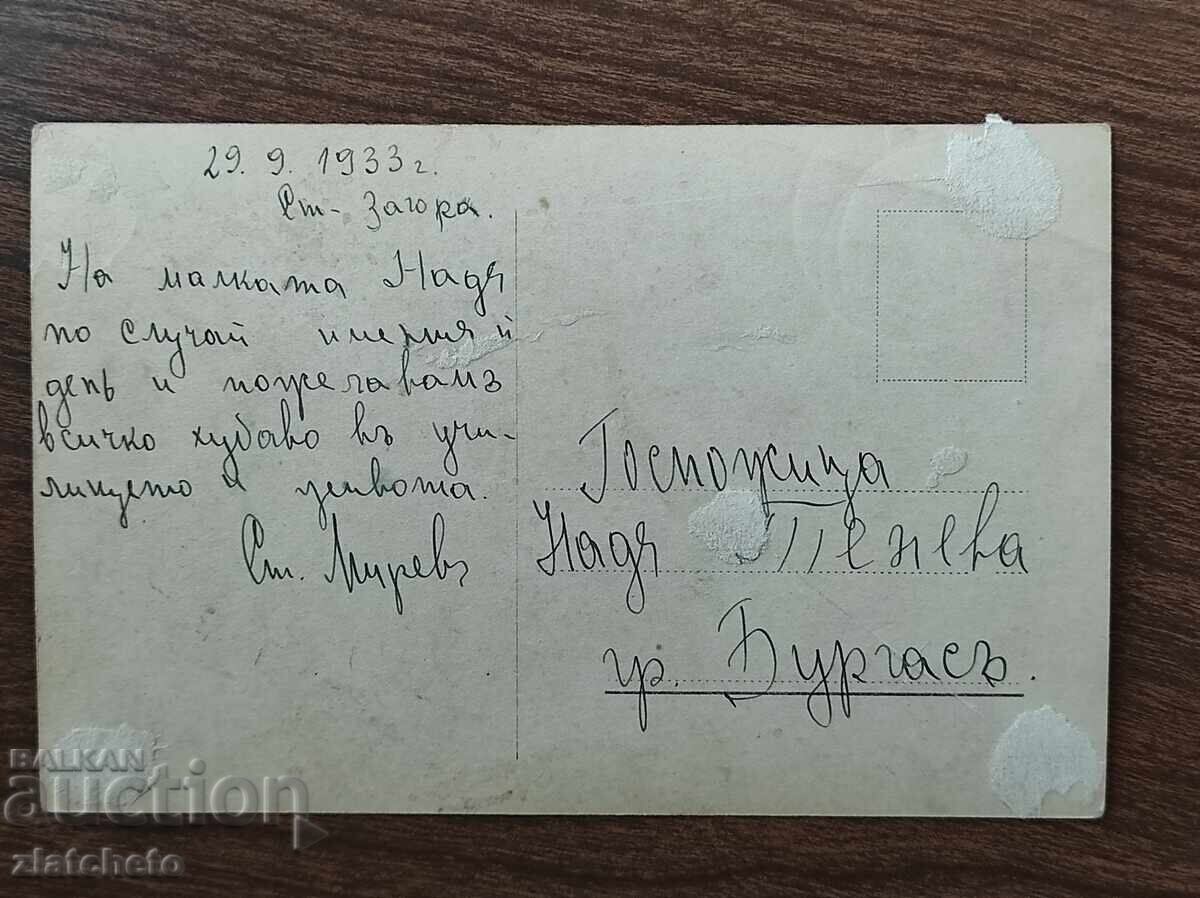 29. 9. 1933 г.
Ст- Загора.
На малката Надя
по случай имення й
день и пожелавамъ
всичко хубаво въ учи-
лището и
Ст. Миревъ
Госпожица
Надя Тенева
гр. Бургасъ.
BALKAN
auction
zlatcheto